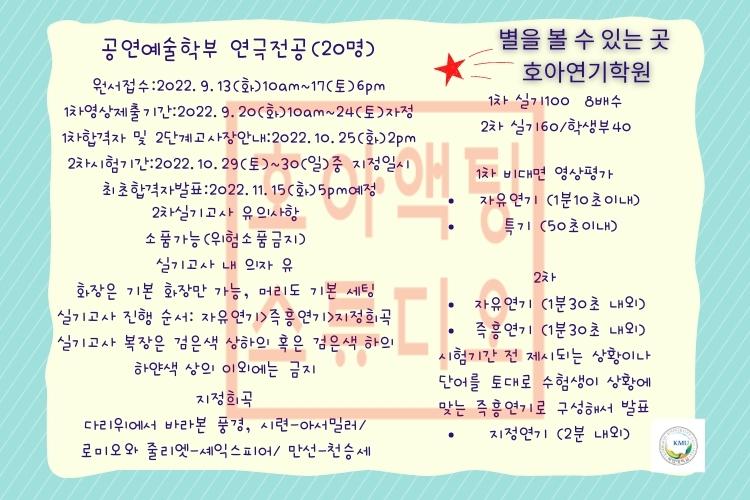 공연예술학부 연극전공(20명)
원서접수:2022.9.13(화)10am~17(토)6pm
1차영상제출기간:2022.9.20(화)10am~24(토)자정
1차합격자 및 2단계고사장안내:2022.10.25(화)2pm
2차시험기간:2022.10.29(토)~30(일)중 지정일시
최초합격자발표:2022.11.15(화)5pm예정
2차실기고사 유의사항
소품가능(위험소품금지)
실기고사 내 의자 유
화장은 기본 화장만 가능, 머리도 기본 세팅
실기고사 진행 순서: 자유연기>즉흥연기>지정희곡
실기고사 복장은 검은색 상하의 혹은 검은색 하의
하얀색 상의 이외에는 금지
지정희곡
다리위에서 바라본 풍경, 시련-아서밀러/
로미오와 줄리엣-셰익스피어/ 만선-천승세
별을 볼 수 있는 곳
호아연기학원
1차 실기100 8배수
2차 실기60/학생부40
1차 비대면 영상평가
• 자유연기 (1분10초이내)
• 특기 (50초이내)
2차
• 자유연기 (1분30초 내외)
• 즉흥연기 (1분30초 내외)
시험기간 전 제시되는 상황이나
단어를 토대로 수험생이 상황에
맞는 즉흥연기로 구성해서 발표
• 지정연기 (2분 내외)
호아액팅
스튜디오
KMU